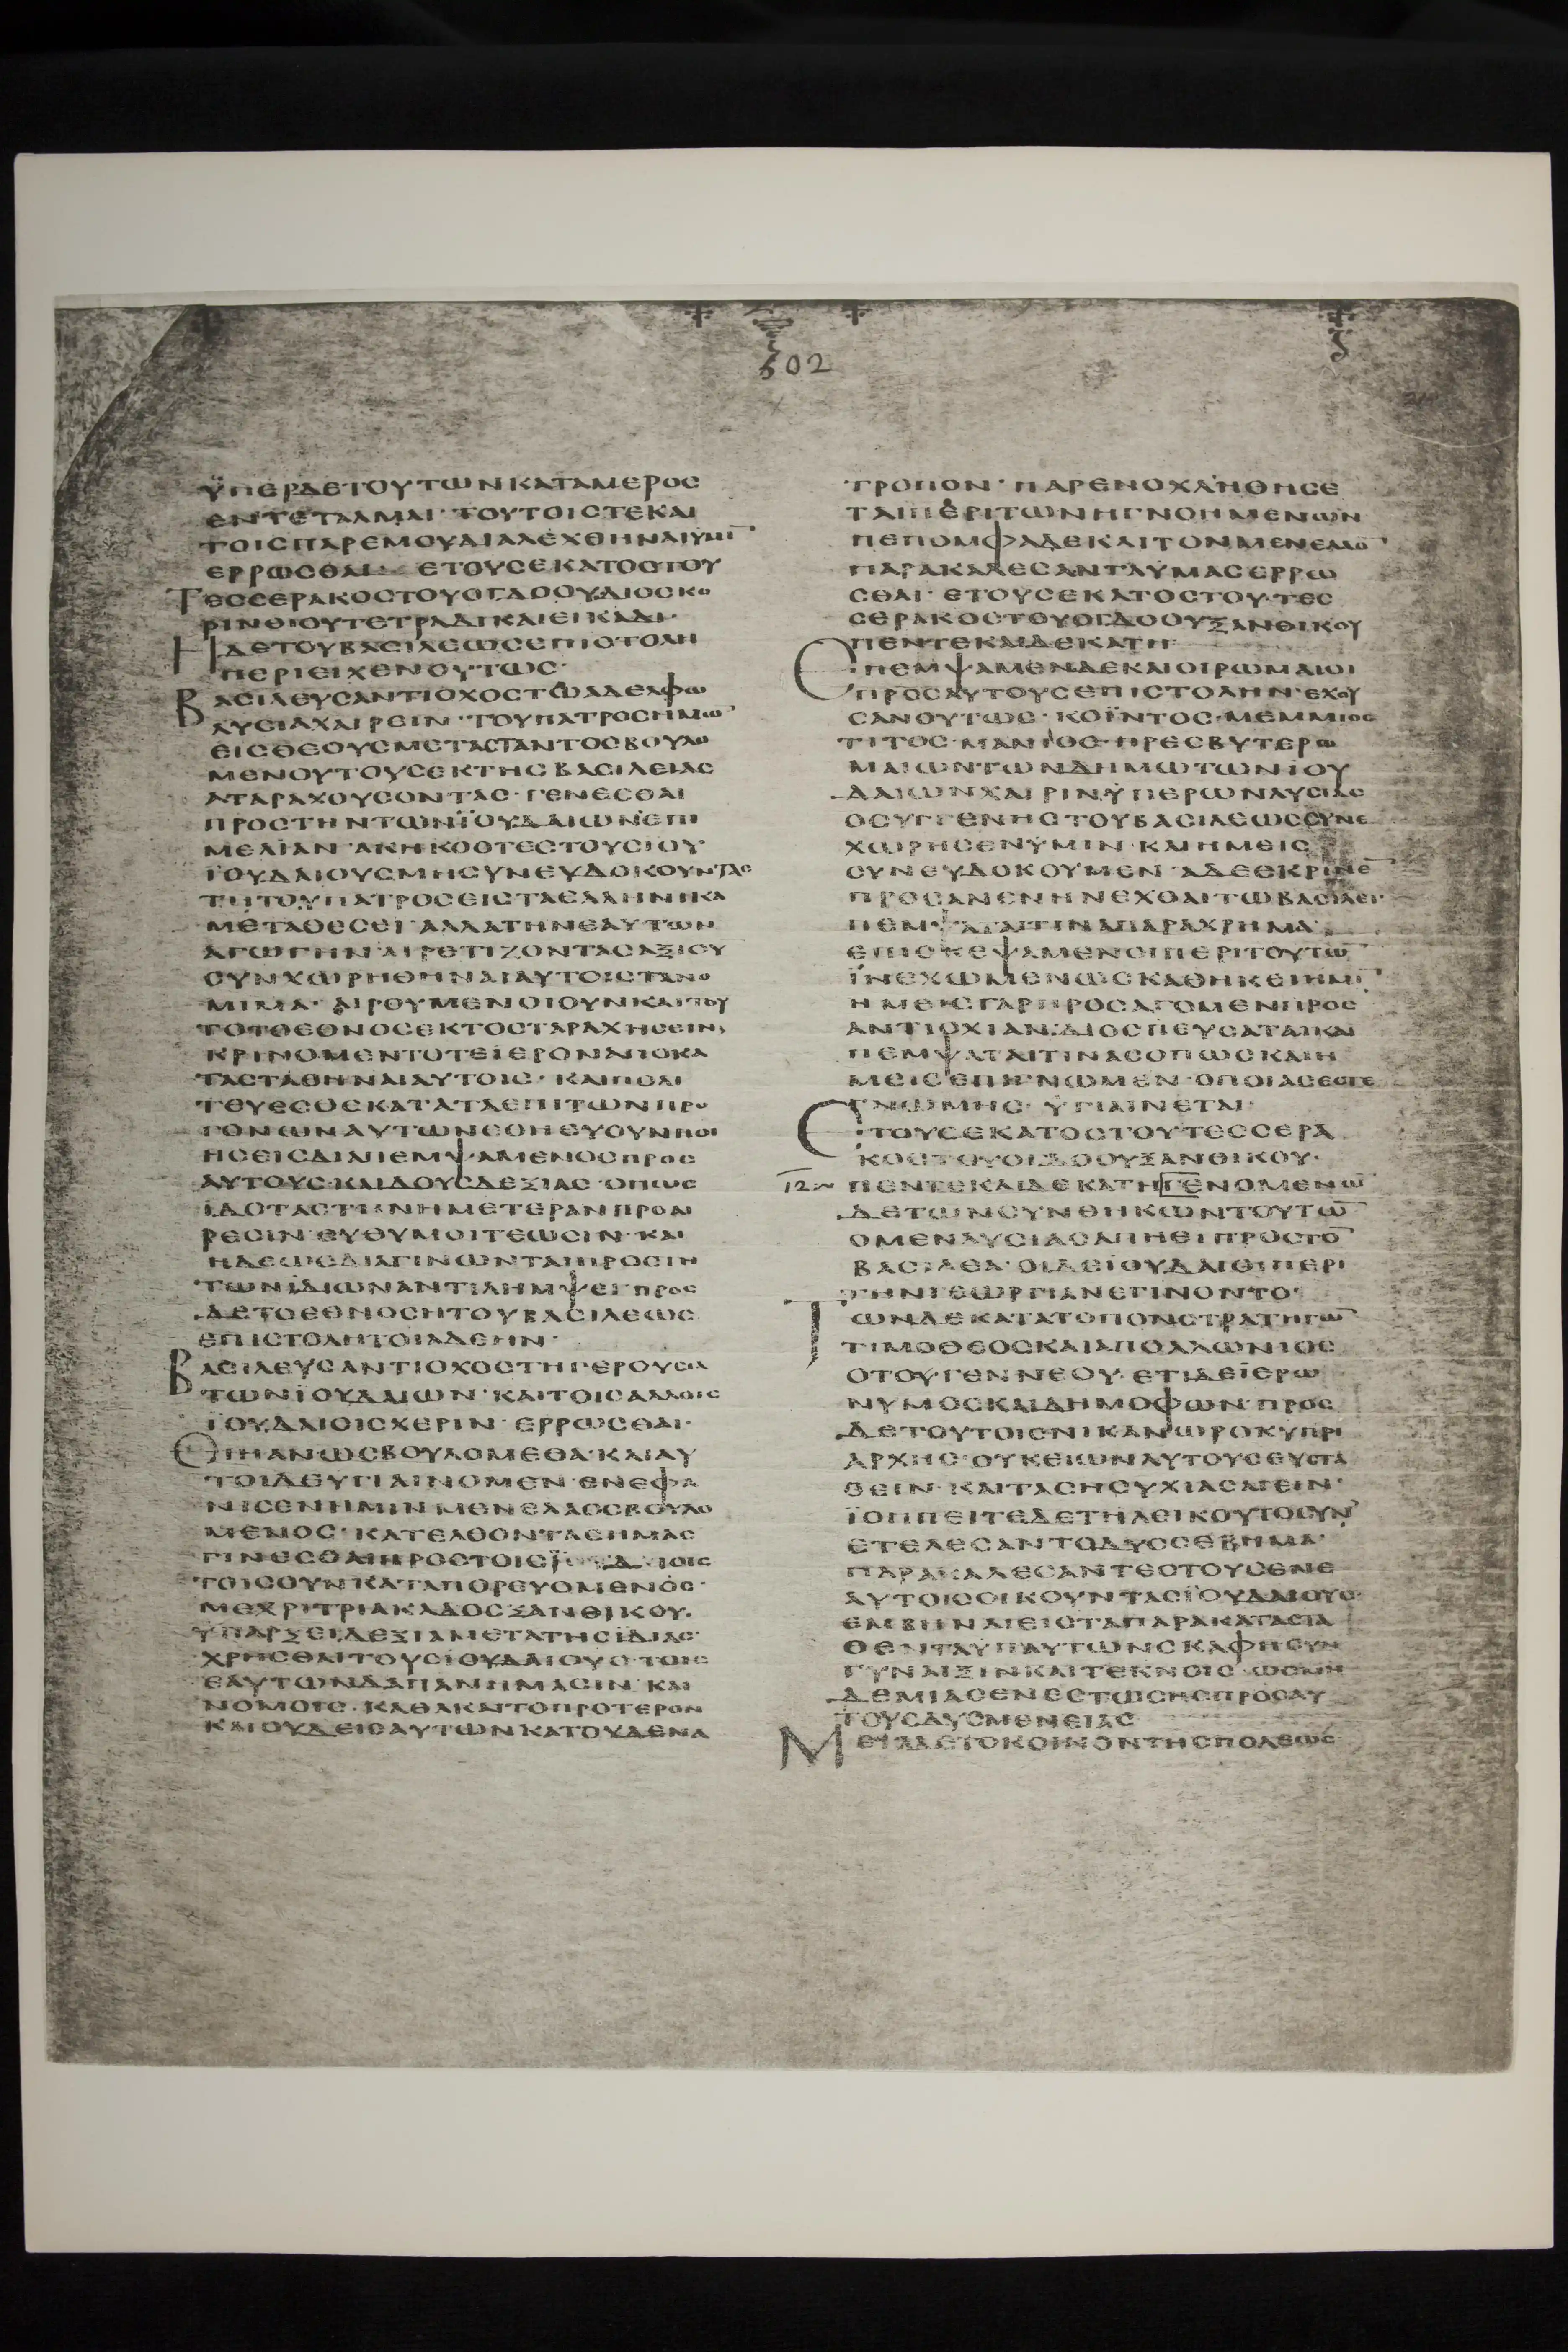 502
ΫΠΕΡΔΕΤΟΥΤΩΝΚΑΤΑΜΕΡΟΣ
ΕΝΤΕΤΑΛΜΑΙ·ΤΟΥΤΟΙΣΤΕΚΑΙ
ΤΟΙΣΠΑΡΕΜΟΥΔΙΑΛΕΧΘΗΝΑΙΫΜΙ¯
ΕΡΡΩΣΘΑΙ· ΕΤΟΥΣΕΚΑΤΟΣΤΟΥ
ΤΕΣΣΕΡΑΚΟΣΤΟΥΟΓΔΟΟΥΔΙΟΣΚΟ
ΡΙΝΘΙΟΥΤΕΤΡΑΔΙΚΑΙΕΙΚΑΔΙ·
ΗΔΕΤΟΥΒΑΣΙΛΕΩΣΕΠΙΣΤΟΛΗ
ΠΕΡΙΕΙΧΕΝΟΥΤΩΣ·
ΒΑΣΙΛΕΥΣΑΝΤΙΟΧΟΣΤΩΑΔΕΛΦΩ
ΛΥΣΙΑΧΑΙΡΕΙΝ·ΤΟΥΠΑΤΡΟΣΗΜΩ¯
ΕΙΣΘΕΟΥΣΜΕΤΑΣΤΑΝΤΟΣΒΟΥΛΟ
ΜΕΝΟΥΤΟΥΣΕΚΤΗΣΒΑΣΙΛΕΙΑΣ
ΑΤΑΡΑΧΟΥΣΟΝΤΑΣ·ΓΕΝΕΣΘΑΙ
ΠΡΟΣΤΗΝΤΩΝΪΟΥΔΑΙΩΝΕΠΙ
ΜΕΛΙΑΝ·ΑΚΗΚΟΟΤΕΣΤΟΥΣΙΟΥ
ΪΟΥΔΑΙΟΥΣΜΗΣΥΝΕΥΔΟΚΟΥΝΤΑΣ
ΤΗΤΟΥΠΑΤΡΟΣΕΙΣΤΑΕΛΛΗΝΙΚΑ
ΜΕΤΑΘΕΣΕΙ·ΑΛΛΑΤΗΝΕΑΥΤΩΝ
ΑΓΩΓΗΝΑΙΡΕΤΙΖΟΝΤΑΣΑΞΙΟΥ
ΣΥΝΧΩΡΗΘΗΝΑΙΑΥΤΟΙΣΤΑΝΟ
ΜΙΜΑ·ΑΙΡΟΥΜΕΝΟΙΟΥΝΚΑΙΤΟΥ
ΤΟΤΟΕΘΝΟΣΕΚΤΟΣΤΑΡΑΧΗΣΕΙΝ
ΚΡΙΝΟΜΕΝΤΟΤΕΙΕΡΟΝΑΠΟΚΑ
ΤΑΣΤΑΘΗΝΑΙΑΥΤΟΙΣ·ΚΑΙΠΟΛΙ
ΤΟΥΕΣΘΕΚΑΤΑΤΑΕΠΙΤΩΝΠΡΟ
ΓΟΝΩΝΑΥΤΩΝΕΘΗΕΥΟΥΝΠΟΙ
ΗΣΕΙΣΔΙΑΠΕΜΨΑΜΕΝΟΣΠΡΟΣ
ΑΥΤΟΥΣ·ΚΑΙΔΟΥΣΔΕΞΙΑΣ·ΟΠΩΣ
ΪΔΟΤΑΣΤΗΝΗΜΕΤΕΡΑΝΠΡΟΑΙ
ΡΕΣΙΝ·ΕΥΘΥΜΟΙΤΕΩΣΙΝ·ΚΑΙ
ΗΔΕΩΣΔΙΑΓΙΝΩΝΤΑΙΠΡΟΣΤΗ
ΤΩΝΪΔΙΩΝΑΝΤΙΛΗΜΨΕΙ·ΠΡΟΣ
ΔΕΤΟΕΘΝΟΣΗΤΟΥΒΑΣΙΛΕΩΣ
ΕΠΙΣΤΟΛΗΤΟΙΑΔΕΗΝ·
ΒΑΣΙΛΕΥΣΑΝΤΙΟΧΟΣΤΗΓΕΡΟΥΣΙΑ
ΤΩΝΪΟΥΔΑΙΩΝ·ΚΑΙΤΟΙΣΑΛΛΟΙΣ
ΪΟΥΔΑΙΟΙΣΧΕΡΙΝ·ΕΡΡΩΣΘΑΙ·
ΕΙΗΑΝΩΣΒΟΥΛΟΜΕΘΑ·ΚΑΙΑΥ
ΤΟΙΔΕΥΓΙΑΙΝΟΜΕΝ·ΕΝΕΦΑ
ΝΙΣΕΝΗΜΙΝΜΕΝΕΛΑΟΣΒΟΥΛΟ
ΜΕΝΟΣ·ΚΑΤΕΛΘΟΝΤΑΣΗΜΑΣ
ΓΙΝΕΣΘΑΙΠΡΟΣΤΟΙΣΪΟΥΔΑΙΟΙΣ
ΤΟΙΣΟΥΝΚΑΤΑΠΟΡΕΥΟΜΕΝΟΣ·
ΜΕΧΡΙΤΡΙΑΚΑΔΟΣΞΑΝΘΙΚΟΥ·
ΥΠΑΡΞΕΙΔΕΞΙΑΜΕΤΑΤΗΣΪΔΙΑΣ·
ΧΡΗΣΘΑΙΤΟΥΣΙΟΥΔΑΙΟΥΣΤΟΙΣ
ΕΑΥΤΩΝΔΑΠΑΝΗΜΑΣΙΝ·ΚΑΙ
ΝΟΜΟΙΣ·ΚΑΘΑΚΑΙΤΟΠΡΟΤΕΡΟΝ
ΚΑΙΟΥΔΕΙΣΑΥΤΩΝΚΑΤΟΥΔΕΝΑ
ΤΡΟΠΟΝ·ΠΑΡΕΝΟΧΛΗΘΗΣΕ
ΤΑΙΠΕΡΙΤΩΝΗΓΝΟΗΜΕΝΩΝ
ΠΕΠΟΜΦΑΔΕΚΑΙΤΟΝΜΕΝΕΛΑΟ¯
ΠΑΡΑΚΑΛΕΣΑΝΤΑΫΜΑΣΕΡΡΩ
ΣΘΑΙ·ΕΤΟΥΣΕΚΑΤΟΣΤΟΥ·ΤΕΣ
ΣΕΡΑΚΟΣΤΟΥΟΓΔΟΟΥΞΑΝΘΙΚΟΥ
ΠΕΝΤΕΚΑΙΔΕΚΑΤΗ
ΕΠΕΜΨΑΜΕΝΔΕΚΑΙΟΙΡΩΜΑΙΟΙ
ΠΡΟΣΑΥΤΟΥΣΕΠΙΣΤΟΛΗΝ·ΕΧΟΥ
ΣΑΝΟΥΤΩΣ·ΚΟΪΝΤΟΣ·ΜΕΜΜΙΟΣ
ΤΙΤΟΣ·ΜΑΝΙΟΣ·ΠΡΕΣΒΥΤΕΡΩ
ΜΑΙΩΝΤΩΝΔΗΜΩΤΩΝΪΟΥ
ΔΑΙΩΝΧΑΙΡΙΝΫΠΕΡΩΝΛΥΣΙΑΣ
ΟΣΥΓΓΕΝΗΣΤΟΥΒΑΣΙΛΕΩΣΣΥΝΕ
ΧΩΡΗΣΕΝΫΜΙΝ·ΚΑΙΗΜΕΙΣ
ΣΥΝΕΥΔΟΚΟΥΜΕΝ·ΑΔΕΕΚΡΙΝΕ¯
ΠΡΟΣΑΝΕΝΗΝΕΧΘΑΙΤΩΒΑΣΙΛΕΙ·
ΠΕΜΨΑΤΑΙΤΙΝΑΠΑΡΑΧΡΗΜΑ·
ΕΠΙΣΚΕΨΑΜΕΝΟΙΠΕΡΙΤΟΥΤΩ¯
ΪΝΕΧΩΜΕΝΩΣΚΑΘΗΚΕΙΗΜΙ¯
ΗΜΕΙΣΓΑΡΠΡΟΣΑΓΟΜΕΝΠΡΟΣ
ΑΝΤΙΟΧΙΑΝ·ΔΙΟΣΠΕΥΣΑΤΑΙΚΑΙ
ΠΕΜΨΑΤΑΙΤΙΝΑΣΟΠΩΣΚΑΙΗ
ΜΕΙΣΕΠΙΓΝΩΜΕΝ·ΟΠΟΙΑΣΕΣΤΕ
ΓΝΩΜΗΣ·ΫΓΙΑΙΝΕΤΑΙ·
ΕΤΟΥΣΕΚΑΤΟΣΤΟΥΤΕΣΣΕΡΑ
ΚΟΣΤΟΥΟΓΔΟΟΥΞΑΝΘΙΚΟΥ·
12 ΠΕΝΤΕΚΑΙΔΕΚΑΤΗΓΕΝΟΜΕΝΩ¯
ΔΕΤΩΝΣΥΝΘΗΚΩΝΤΟΥΤΩ¯
ΟΜΕΝΛΥΣΙΑΣΑΠΗΕΙΠΡΟΣΤΟ¯
ΒΑΣΙΛΕΑ·ΟΙΔΕΪΟΥΔΑΙΟΙΠΕΡΙ
ΤΗΝΓΕΩΡΓΙΑΝΕΓΙΝΟΝΤΟ·
ΤΩΝΔΕΚΑΤΑΤΟΠΟΝΣΤΡΑΤΗΓΩ¯
ΤΙΜΟΘΕΟΣΚΑΙΑΠΟΛΛΩΝΙΟΣ
ΟΤΟΥ·ΓΕΝΝΕΟΥ·ΕΤΙΔΕΪΕΡΩ
ΝΥΜΟΣΚΑΙΔΗΜΟΦΩΝ·ΠΡΟΣ
ΔΕΤΟΥΤΟΙΣΝΙΚΑΝΩΡΟΚΥΠΡΙ
ΑΡΧΗΣ·ΟΥΚΕΙΩΝΑΥΤΟΥΣΕΥΣΤΑ
ΘΕΙΝ·ΚΑΙΤΑΣΗΣΥΧΙΑΣΑΓΕΙΝ·
ΪΟΠΠΕΙΤΕΔΕΤΗΛΕΙΚΟΥΤΟΣΥΝ
ΕΤΕΛΕΣΑΝΤΟΔΥΣΣΕΒΗΜΑ·
ΠΑΡΑΚΑΛΕΣΑΝΤΕΣΤΟΥΣΕΝΕ
ΑΥΤΟΙΣΟΙΚΟΥΝΤΑΣΪΟΥΔΑΙΟΥΣ·
ΕΜΒΗΝΑΙΕΙΣΤΑΠΑΡΑΚΑΤΑΣΤΑ
ΘΕΝΤΑΫΠΑΥΤΩΝΣΚΑΦΗΣΥΝ
ΓΥΝΑΙΞΙΝΚΑΙΤΕΚΝΟΙΣ·ΩΣΜΗ
ΔΕΜΙΑΣΕΝΕΣΤΩΣΗΣΠΡΟΣΑΥ
ΤΟΥΣΔΥΣΜΕΝΕΙΑΣ
ΜΕΤΑΔΕΤΟΚΟΙΝΟΝΤΗΣΠΟΛΕΩΣ